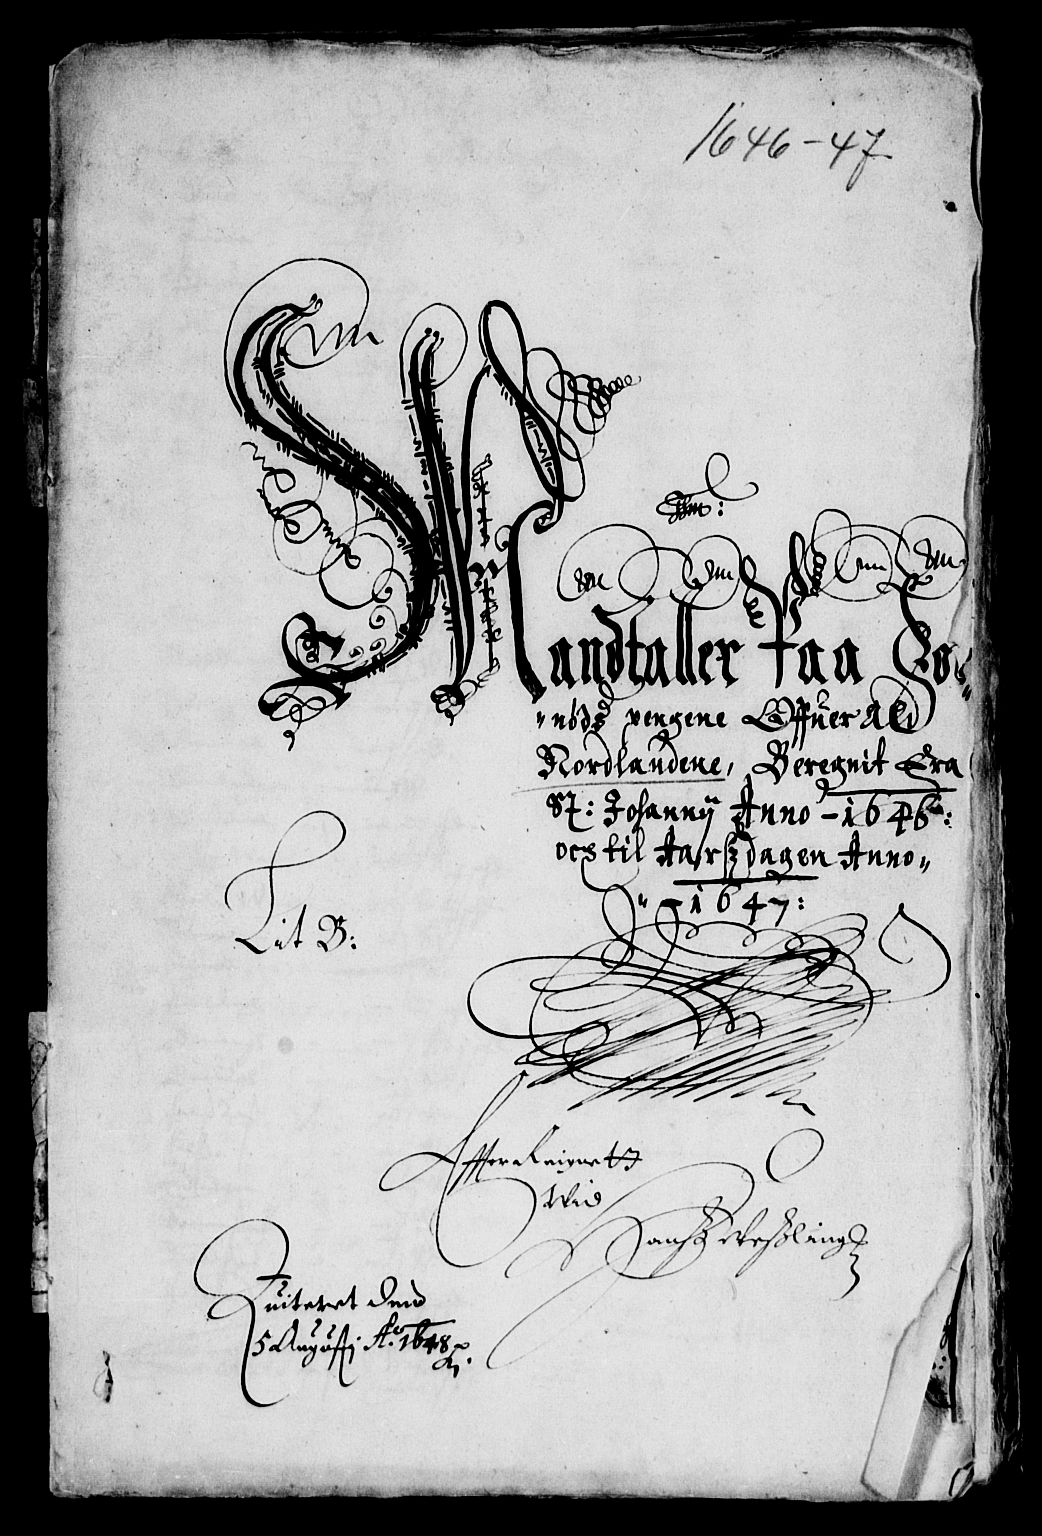 1646-47
Mandtaller Paa Co-
"nods pengene Offuer Ald
Nordlandene, Beregnit Fra
St: Johannÿ Anno - 1646:
och til Aarsz dagen Anno"
"- 1647:
Lit B:
Effter Reignet
Wid
Hansz Weszling
Quiteret denn
5 Augustj Ao. 1648